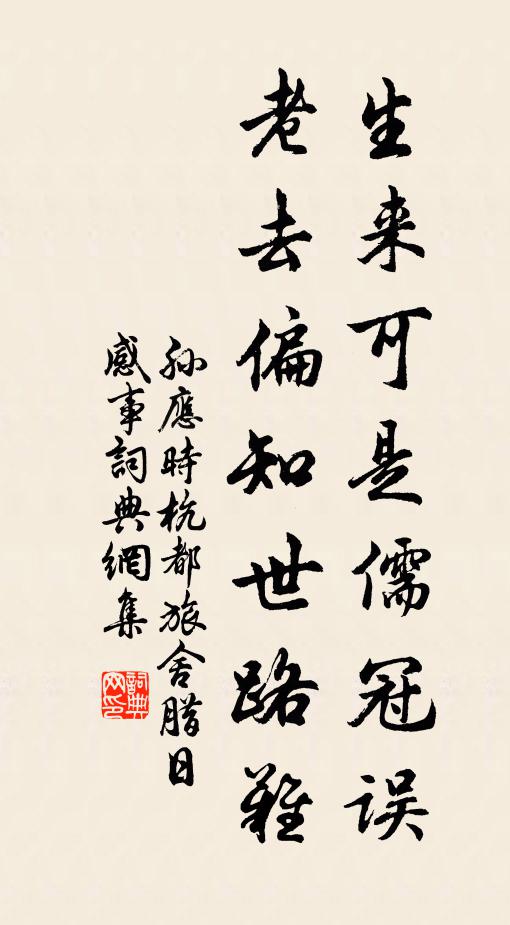 生来可是儒冠误
老去偏知世路難
孙應時杭都旅舍腊日
感事詞典網集
詞典
网印